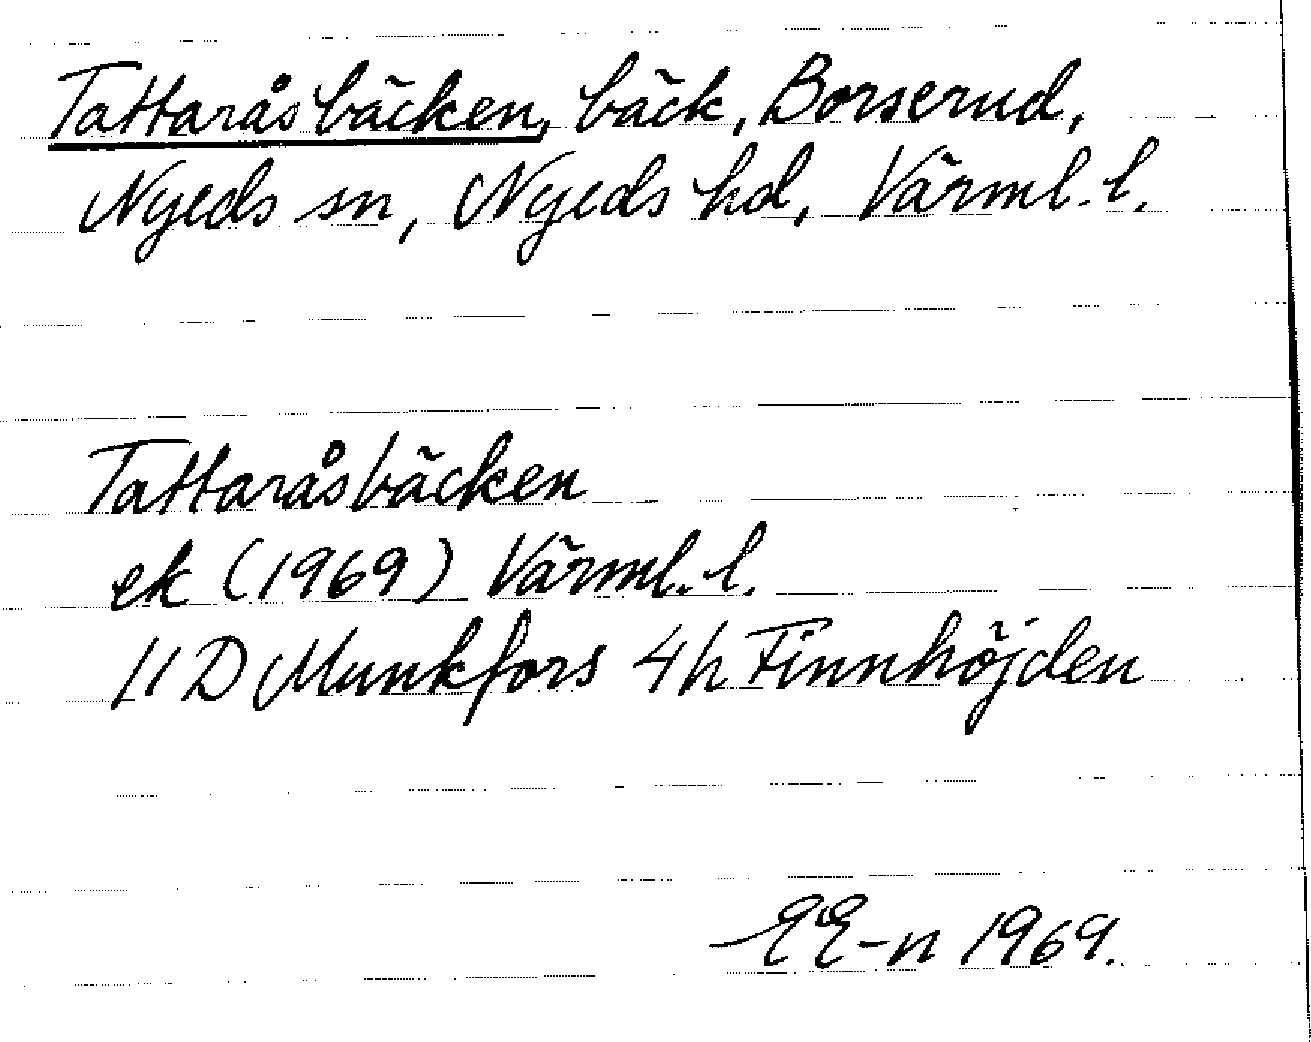 Tattaråsbäcken, bäck, Borserud,
Nyeds sn, Nyeds hd, Värml. l.
Tattaråsbäcken
ek (1969) Värml. l.
11 D Munkfors 4h Finnhöjden
EE-n 1969.